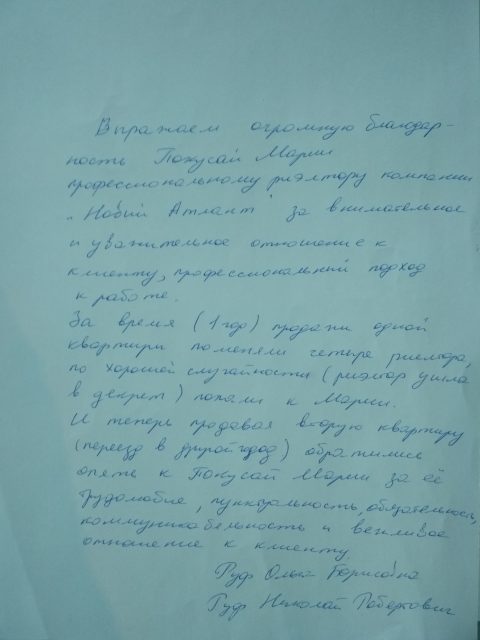 Выражаем огромную благодар-
ность Покусай Марии
профессиональному риэлтору компании
"Новый Атлант" за внимательное
и уважительное отношение к
клиенту, профессиональный подход
к работе.
За время (1 год) продажи одной
квартиры поменяли четыре риелтора,
по хорошей случайности (риэлтор ушла
в декрет) попали к Марии.
И теперь продавая вторую квартиру
(переезд в другой город) обратились
опять к Покусай Марии за её
трудолюбие, пунктуальность, обязательность,
коммуникабельность и вежливое
отношение к клиенту.
Руф Ольга Борисовна
Руф Николай Робертович